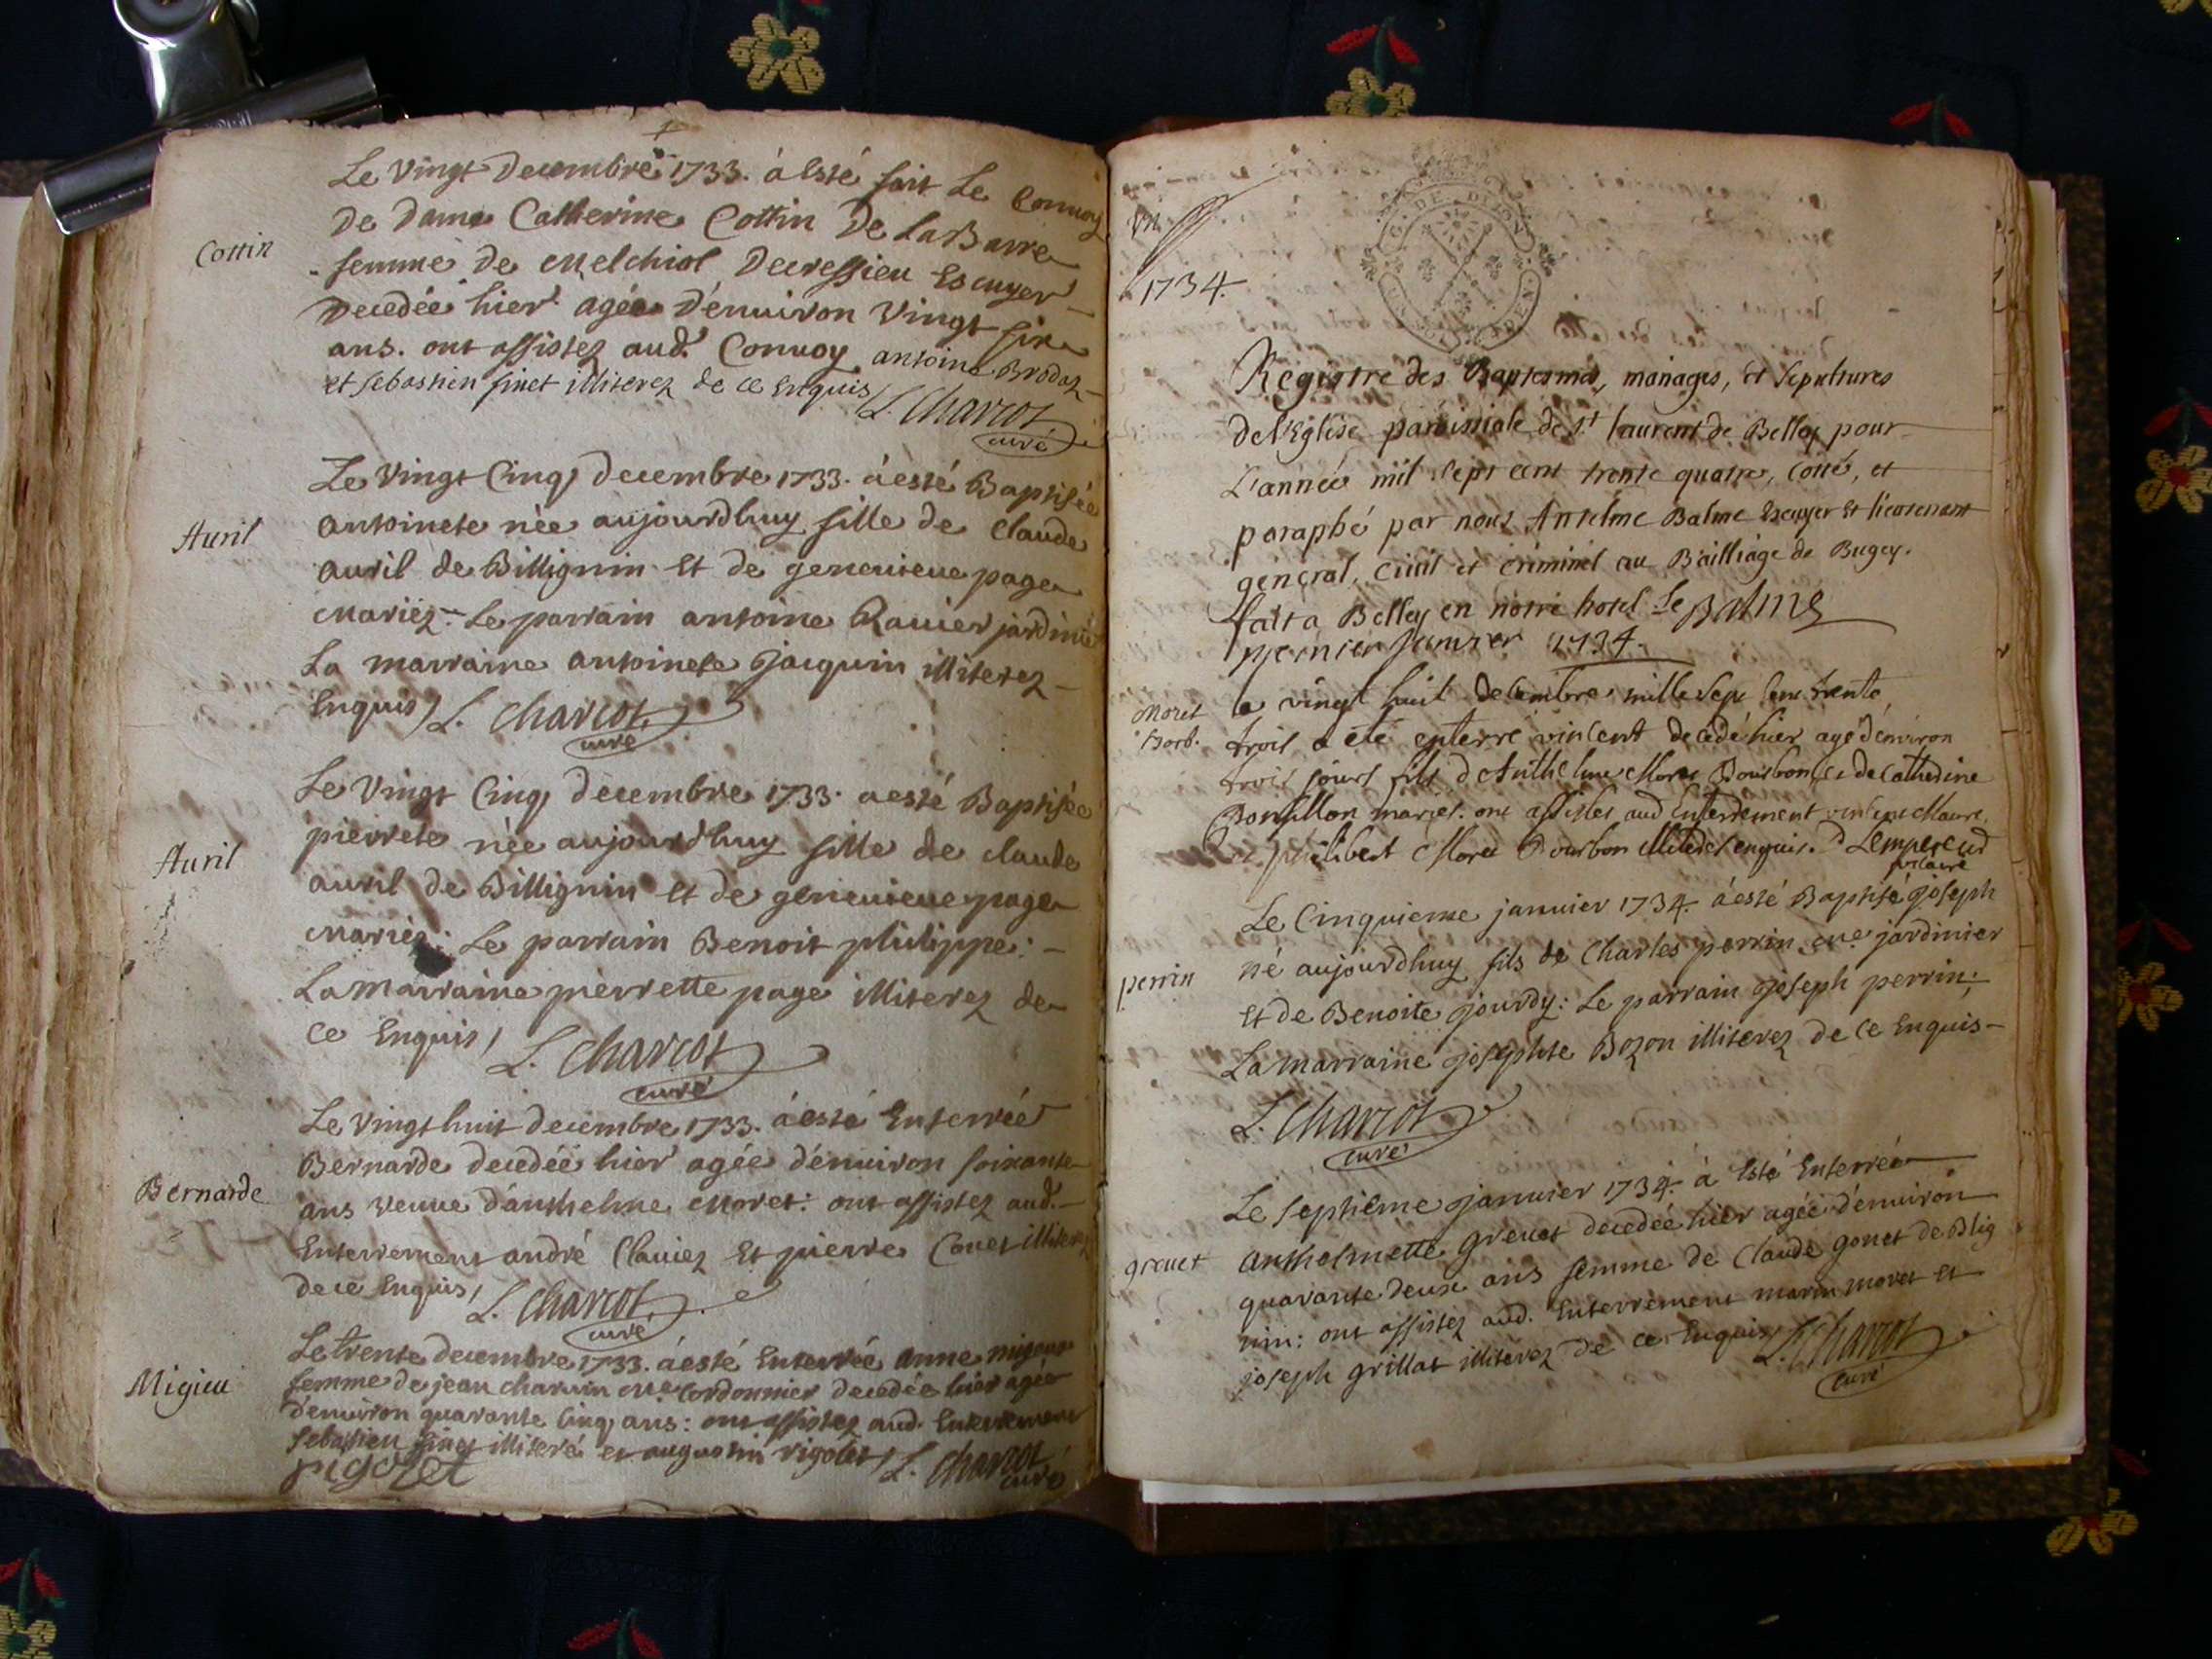 Le Vingt Decembre 1733. à Esté fait Le Convoy
De Dame Catherine Cottin De LaBarre
Cottin
femme de Melchiol Decressieu Escuyer
Decedée hier agée d'enuiron Vingt six
ans. ont assistez aud. Conuoy antoine Brodaz
et sebastien finet illiterez de ce Enquis
L. Charcot
curé
Le Vingt Cinq decembre 1733. à esté Baptisée
Auril
antoinete née aujourdhuy fille de Claude
auril de Billignin Et de geneuieue page
Mariéz. Le parrain antoine Rauier jardinier
La marraine antoinete Jacquin illiterez
Enquis L. Charcot
curé
Le Vingt Cinq decembre 1733. a esté Baptisée
pierrete née aujourdhuy fille de claude
Auril
auril de Billignin Et de geneuieue page
Mariéz: Le parrain Benoit philippe:
La marraine pierrette page illiterez de
ce Enquis
L. Charcot
curé
Le Vingt huit decembre 1733. à esté Enterrée
Bernarde
Bernarde decedée hier agée d'enuiron soixante
ans veuue d'anthelme Moret: ont assistez aud.
Enterrement andré Clauiez Et pierre Conet illiterez
de ce Enquis
L. Charcot
curé
Le trente decembre 1733. à esté Enterrée anne
Migieu
femme de jean charuin me Cordonnier decedée hier agée
d'enuiron quarante Cinq ans: ont assistez aud. Enterrement
sebastien finet illiteré et augustin rigolet
rigolet
L. Charcot
curé
Un
1734.
G. DE DIJON
Registre des Baptesmes, mariages, et sepultures
de l'Eglise paroissiale de St laurent de Belley pour
L'année mil sept cent trente quatre, cotté, et
paraphé par nous Antelme Balme Escuyer et lieutenant
general, ciuil et criminel au Bailliage de Bugey.
fait a Belley en notre hotel Le Balme
premier januier 1734.
Moret
le vingt huit decembre mille sept cent trente
Borb.
trois a été enterré vincent decedé hier agé d'environ
trois jours fils d'Anthelme Moret Bourbon et de Cathedine
Bonsillon mariés. ont assistés aud Enterrement
philibert Moret Bourbon illiterés enquis. D Lempereur
vicaire
Le Cinquieme januier 1734. à esté Baptisé joseph
perrin
né aujourdhuy fils de Charles perrin me jardinier
Et de Benoite jourdy: Le parrain joseph perrin:
La marraine josephte Bozon illiterez de ce Enquis
L. Charcot
curé
Le septieme januier 1734. à Esté Enterrée
greuet
anthelmette greuet decedée hier agée d'enuiron
quarante deux ans femme de Claude gonet de Blig
nin: ont assistez aud. Enterrement marin moret et
joseph grillat illiterez de ce Enquis L. Charcot
curé